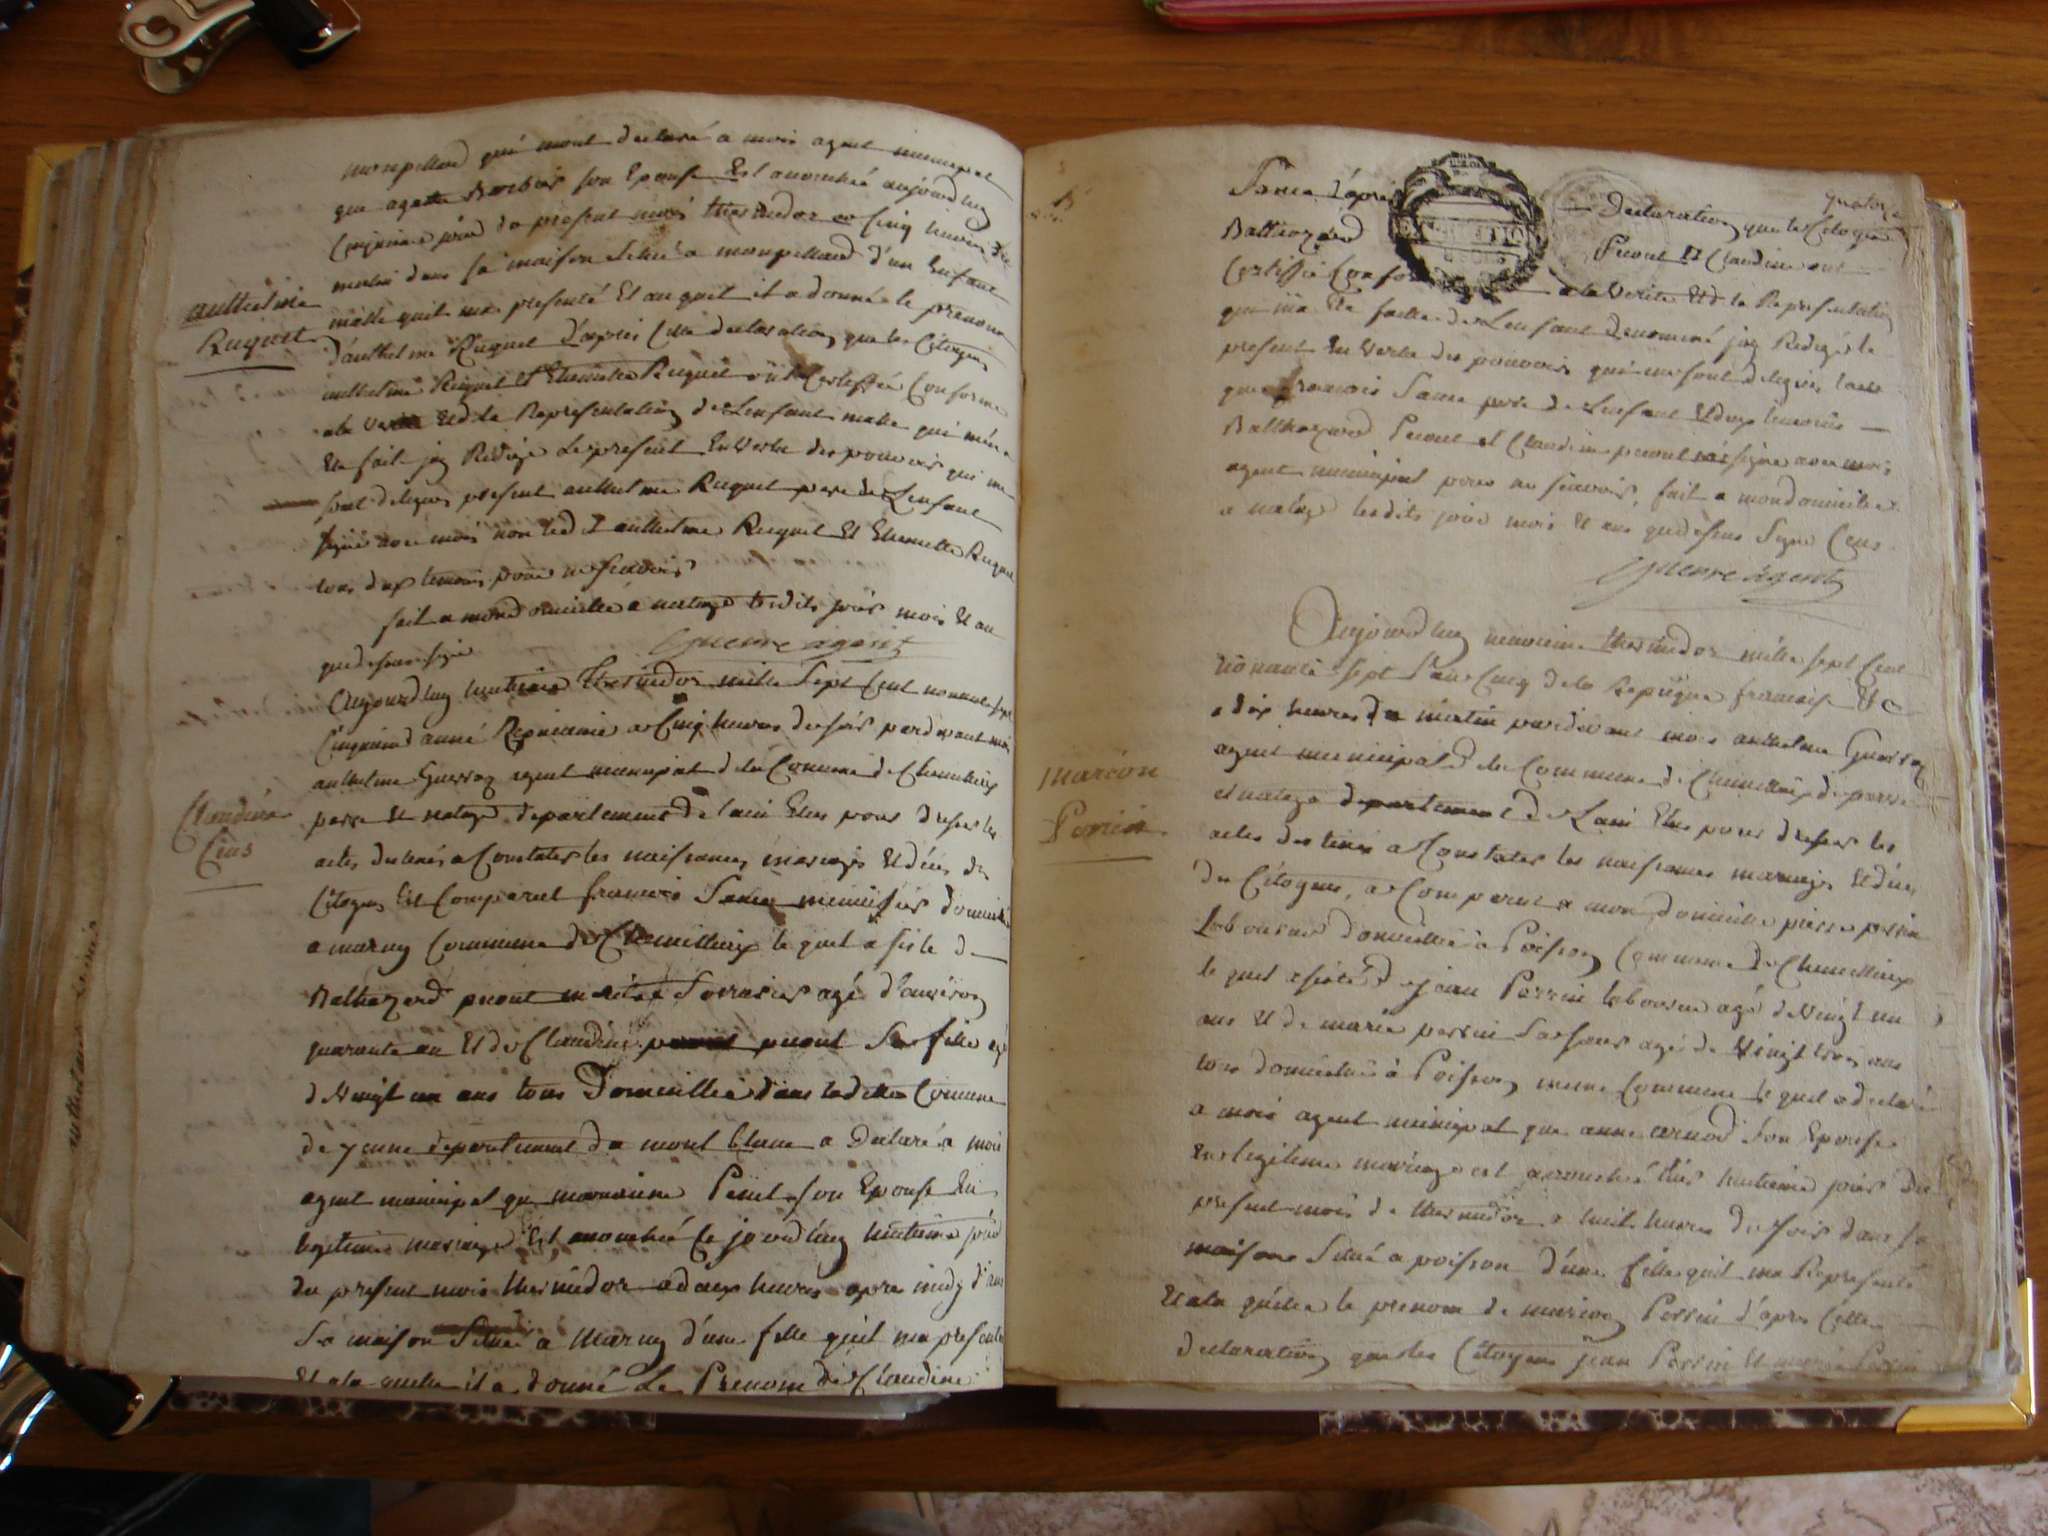 qui mont declaré a moi agent municipal
que agatte Barbier son Epouse Est acouchée aujourdhuy
jour du present mois thermidor a Cinq heures du
matin dans sa maison Située a monpelland d'un Enfant
malle quil ma presenté Et auquel il a donné le prenom
d'anthelme Ruquet d'apres Cette declaration que les Citoyens
anthelme
Ruquet
anthelme Ruquet Et Etiennette Ruquet ont Certiffié Conforme
a la verité Et de la Representation de Lenfant malle qui ma
Ete fait jay Redigé Le present En Vertu des pouvoirs qui me
sont delegues present anthelme Ruquet pere de Lenfant
signé avec moi non led t anthelme Ruquet Et Etiennette Ruquet
tous deux temoins pour ne scavoir
fait a mon domicille a natage lesdits jour mois Et an
que dessus signé
Guerre agent
Aujourdhuy huitieme thermidor mille Sept Cent nonante sept
Cinquieme anné a Cinq heures du soir pardevant moi
anthelme Guerraz agent municipal de la Comune de Chemillieu
parve Et natage departement de lain Elu pour dresser les
Claudine
actes destinés a Constater les naissances mariages Et déces des
Citoyens Est Comparut francois menuisier domicilié
a marny Commune de Chemillieu le quel assisté de
Balthazard picout agé d'environ
quarante an Et de Claudine picout Sa fille agé
de Vingt un ans tous Domicillié dans laditte Comune
de yenne departement du mont blanc a Declaré a moi
agent municipal que Picout son Epouse En
legitime mariage Est acouchée Ce jourdhuy huitieme jour
du present mois thermidor a deux heures apres midy dans
Sa maison Située a Marny d'une fille quil ma presenté
Et a la quelle il a donné Le Prenom de Claudine
quatorze
d'apres Declaration que les Citoyens
Balthazard Picout Et Claudine ont
Certiffié Confor a la Verité Et de la Representation
qui ma Ete faitte de Lenfant denommé jay Redigé le
present En Vertu des pouvoirs qui me sont delegués
que francois pere de Lenfant Et deux temoins
Balthazard Picout et Claudine picout signé avec moi
agent municipal pour ne scavoir, fait a mon domicille
a natage lesdits jour mois Et an que dessus Signé
Guerre agent
Aujourdhuy neuvieme thermidor mille sept Cent
nonante Sept Lan Cinq de la Republique francaise
a dix heures du matin pardevant moi anthelme Guerraz
agent municipal de la Commune de Chemillieu de parve
et natage departement de Lain Elu pour dresser les
marion
Perrin
actes destinés a Constater les naissances mariages Et déces
des Citoyens, a Comparut a mon domicille pierre perrin
laboureur domicillié a Poisson Commune de Chemillieu
le quel assisté de jean Perrin laboureur agé de Vingt un
ans Et de marie perrin Sa soeur agé de Vingt trois ans
tous domicilliés a Poisson meme Commune le quel a declaré
a moi agent municipal que anne son Epouse
En legitime mariage est acouchée hier huitieme jour du
present mois de thermidor a huit heures du soir dans sa
maison Située a poisson d'une fille quil ma Representé
Et a la quelle le prenom de marion Perrin d'apres Cette
declaration que les Citoyens jean Perrin Et marie Perrin